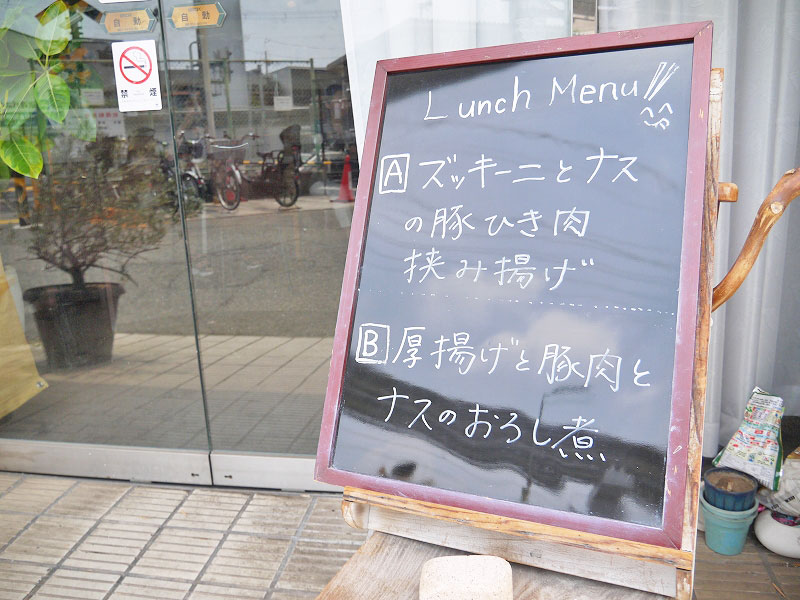 自動
自動
禁煙
Lunch Menu!!
A ズッキーニとナス
の豚ひき肉
挟み揚げ
B 厚揚げと豚肉と
ナスのおろし煮